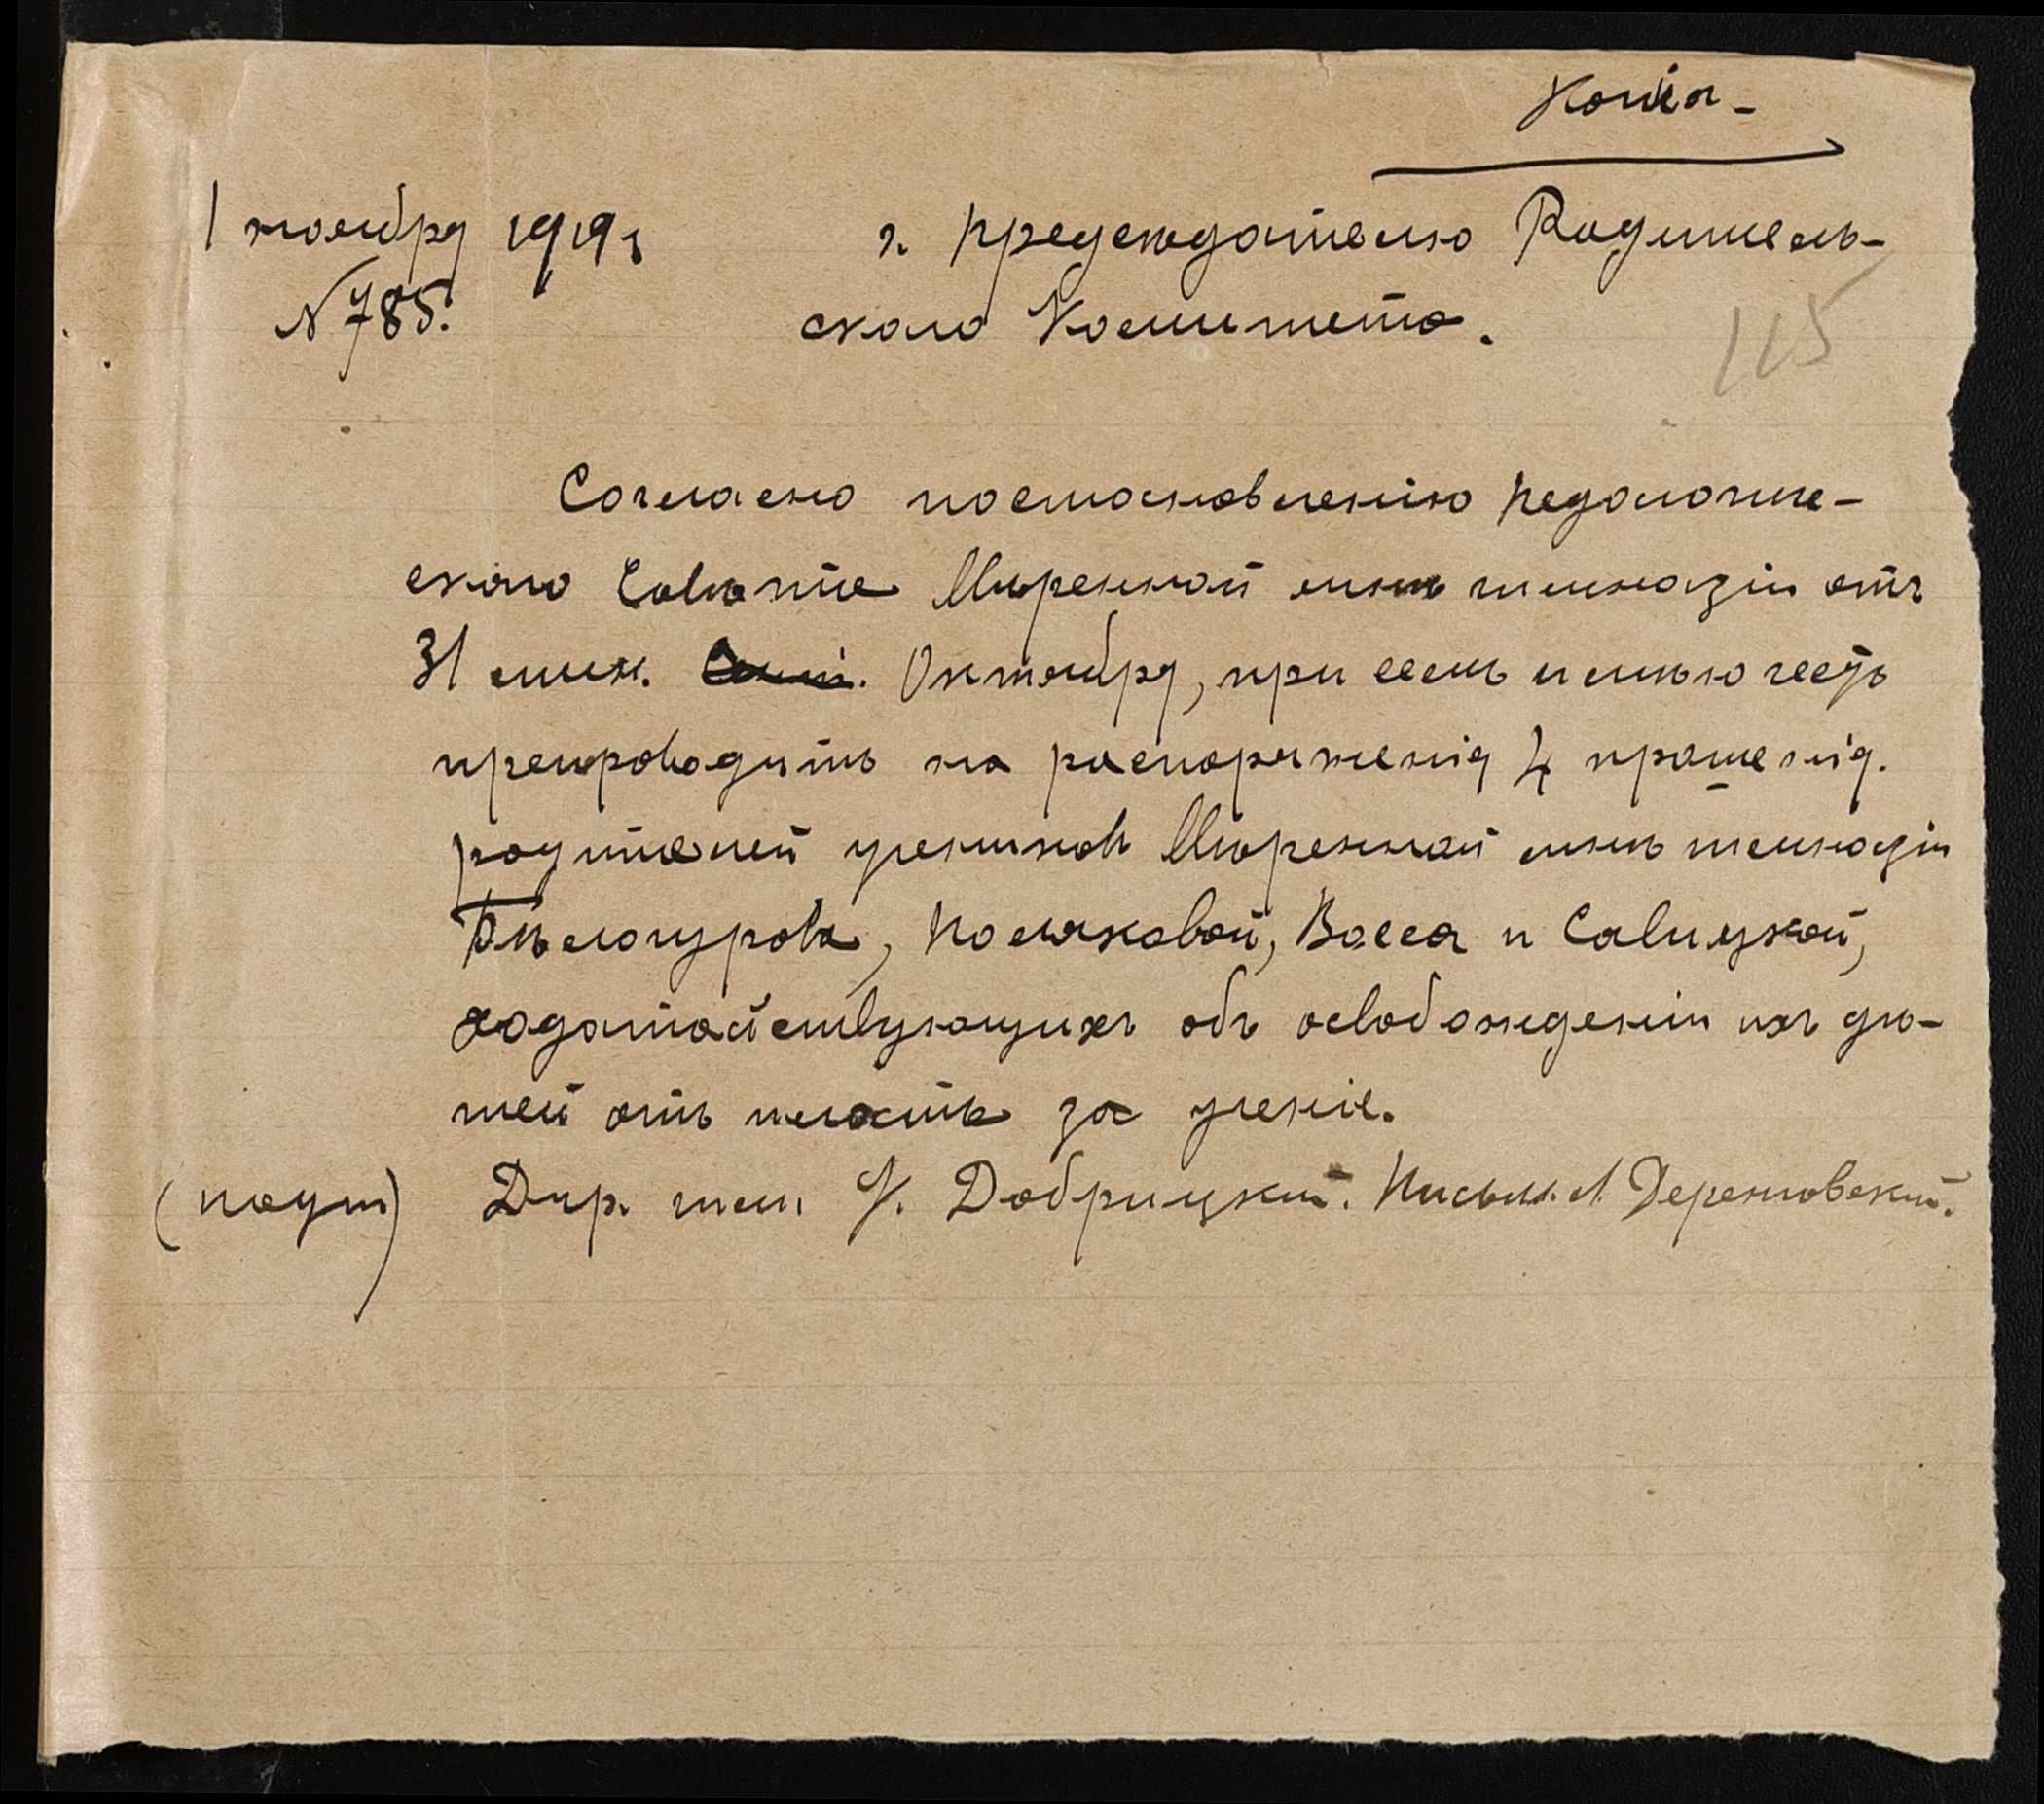 Копія
1 ноября 1919 г.
г. Председателю Родитель-
№ 785.
скаго Комитета.
115
Согласно постановленію Педагогиче-
скаго Совѣта Мирской гимназіи отъ
31 мин. Октября, при семъ имѣю честь
препроводить на распоряженія 4 прошенія.
родителей учениковъ гимназіи
Бѣлогурова, Поляковой, Восса и Савицкой,
ходатайствующихъ объ освобожденіи ихъ дѣ-
тей отъ платы за ученіе.
(подп) Дир. гим. У. Добрицкий. Письм. Л. Дереновский.